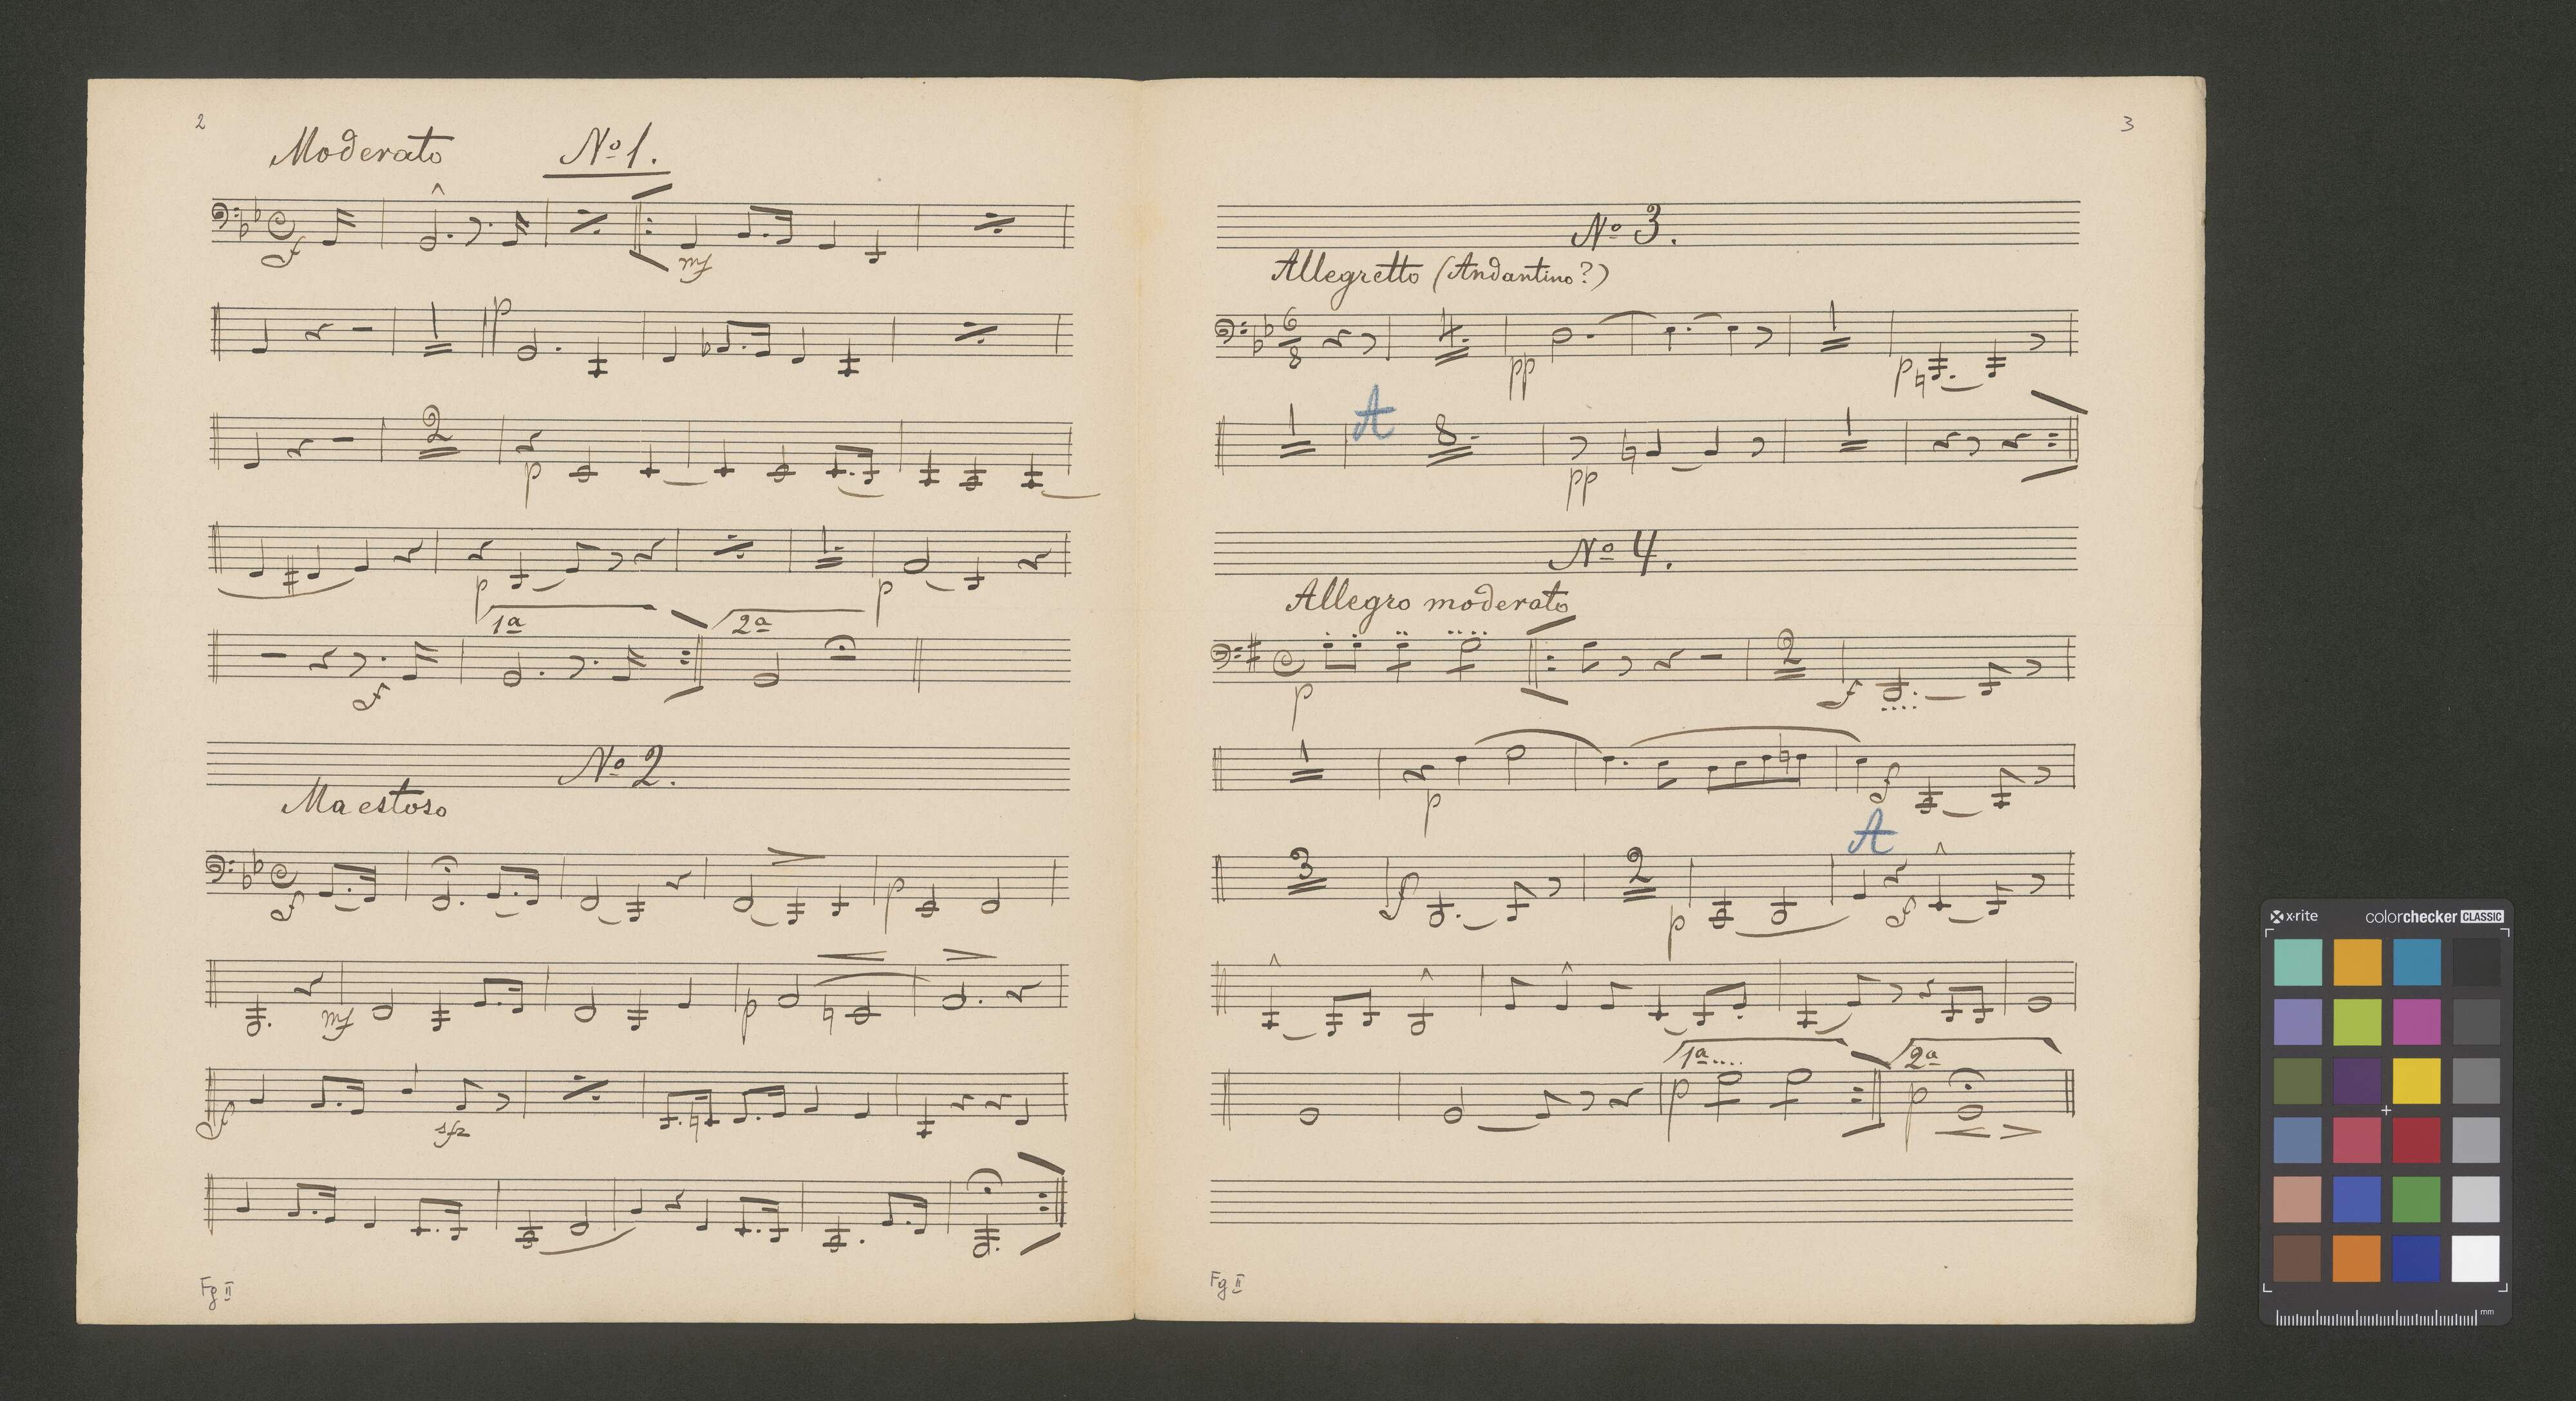 2
Moderato No 1.
f
mf
1
p
2
p
p
1.
p
1a 2a
f
No 2.
Maestoso
f
p
mf
p
f
sfz
Fg II
3
No 3.
Allegretto (Andantino?)
6
8
4.
pp
1
p
1
A
8.
pp
1
No 4.
Allegro moderato
p
2
f
1
p
f
A
3
f
2
p
f
1a....
p
2a
p
Fg II
x-rite colorchecker CLASSIC
mm